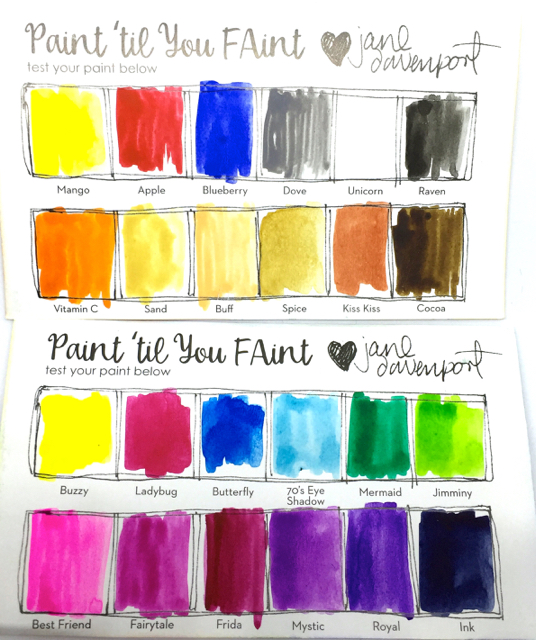 Paint 'til You FAint
jane
davenport
test your paint below
Mango Apple Blueberry Dove Unicorn Raven
Vitamin C Sand Buff Spice Kiss Kiss Cocoa
Paint 'til You FAint
jane
davenport
test your paint below
Buzzy Ladybug Butterfly 70's Eye Shadow Mermaid Jimminy
Best Friend Fairytale Frida Mystic Royal Ink